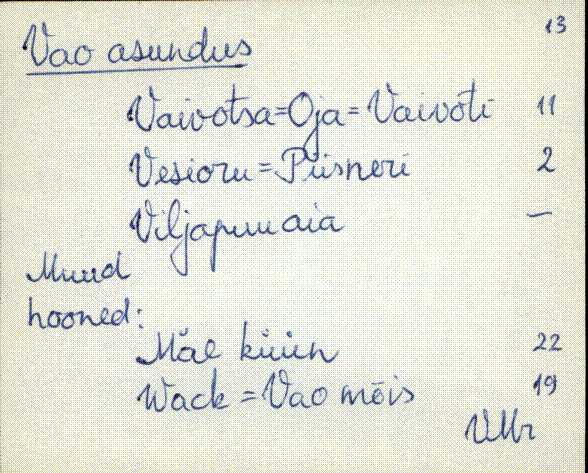 13
Vao asundus
Vaivotsa=Oja=Vaivoti 11
Vesioru=Piisneri 2
Viljapuuaia —
Muud
hooned:
Mäe küün 22
Wack = Vao mõis 19
VMr